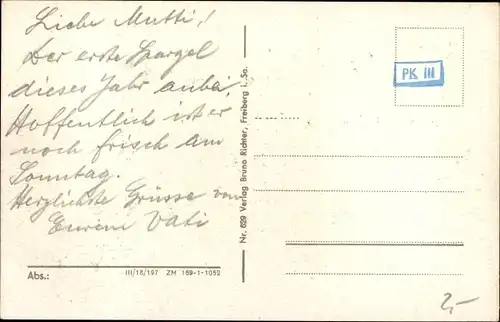 Liebe Mutti!
Der erste Spargel
dieses Jahr anbei
Hoffentlich ist er
noch frisch am
Sonntag.
Herzlichste Grüsse von
Eurem Vati
Abs.:
III/18/197 ZM 169-1-1052
Nr. 629 Verlag Bruno Richter, Freiberg i. Sa.
PK III
2,-